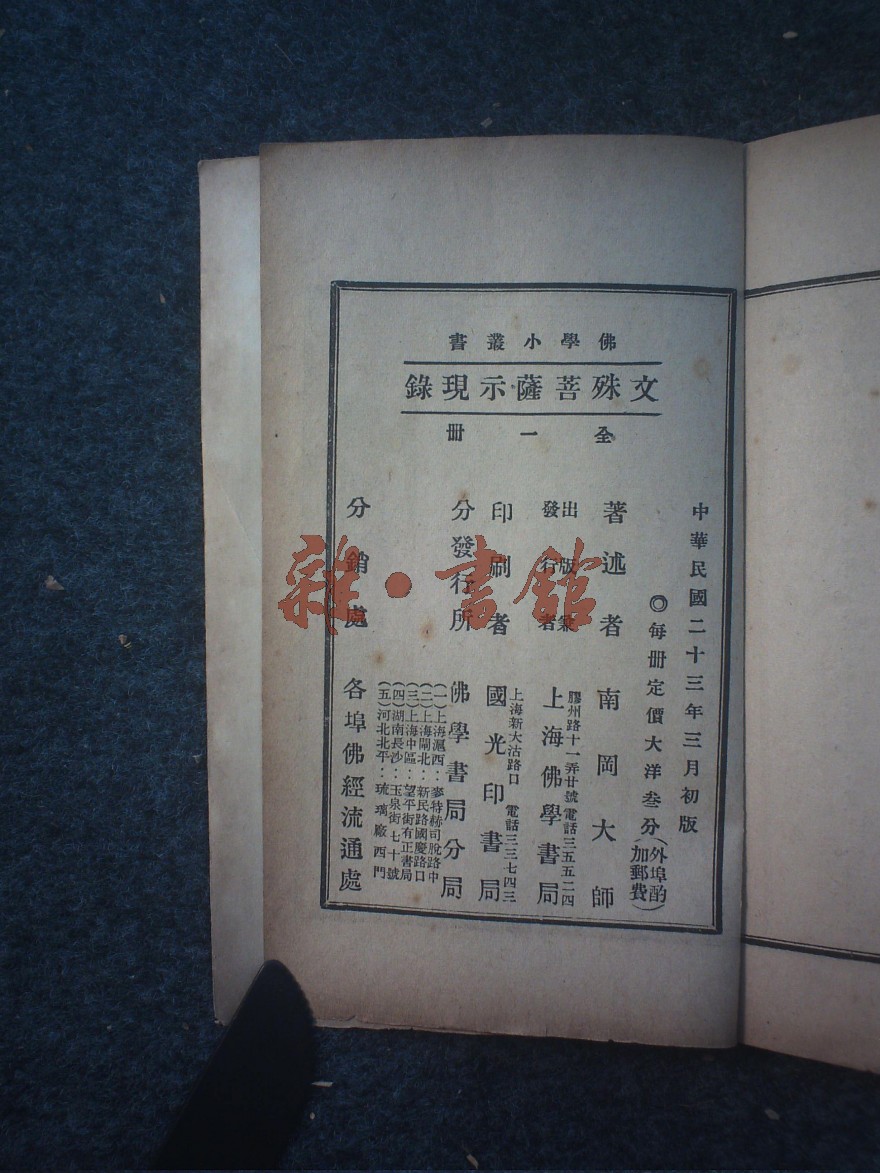 佛學小叢書
文殊菩薩示現錄
全一冊
中華民國二十三年三月初版
◎每冊定價大洋叁分(外埠酌加郵費)
著述者 南岡大師
出版兼發行者 上海佛學書局
膠州路十一弄廿號 電話三五五二四
印刷者 國光印書局
上海新大沽路口 電話三三七四三
分發行所 佛學書局分局
(一)上海滬西:麥特赫司脫路中
(二)上海閘北:新民路國慶路口
(三)上海中區:望平街有正書局
(四)湖南長沙:玉泉街七十號
(五)河北北平:琉璃廠西門
分銷處 各埠佛經流通處
雜·書館